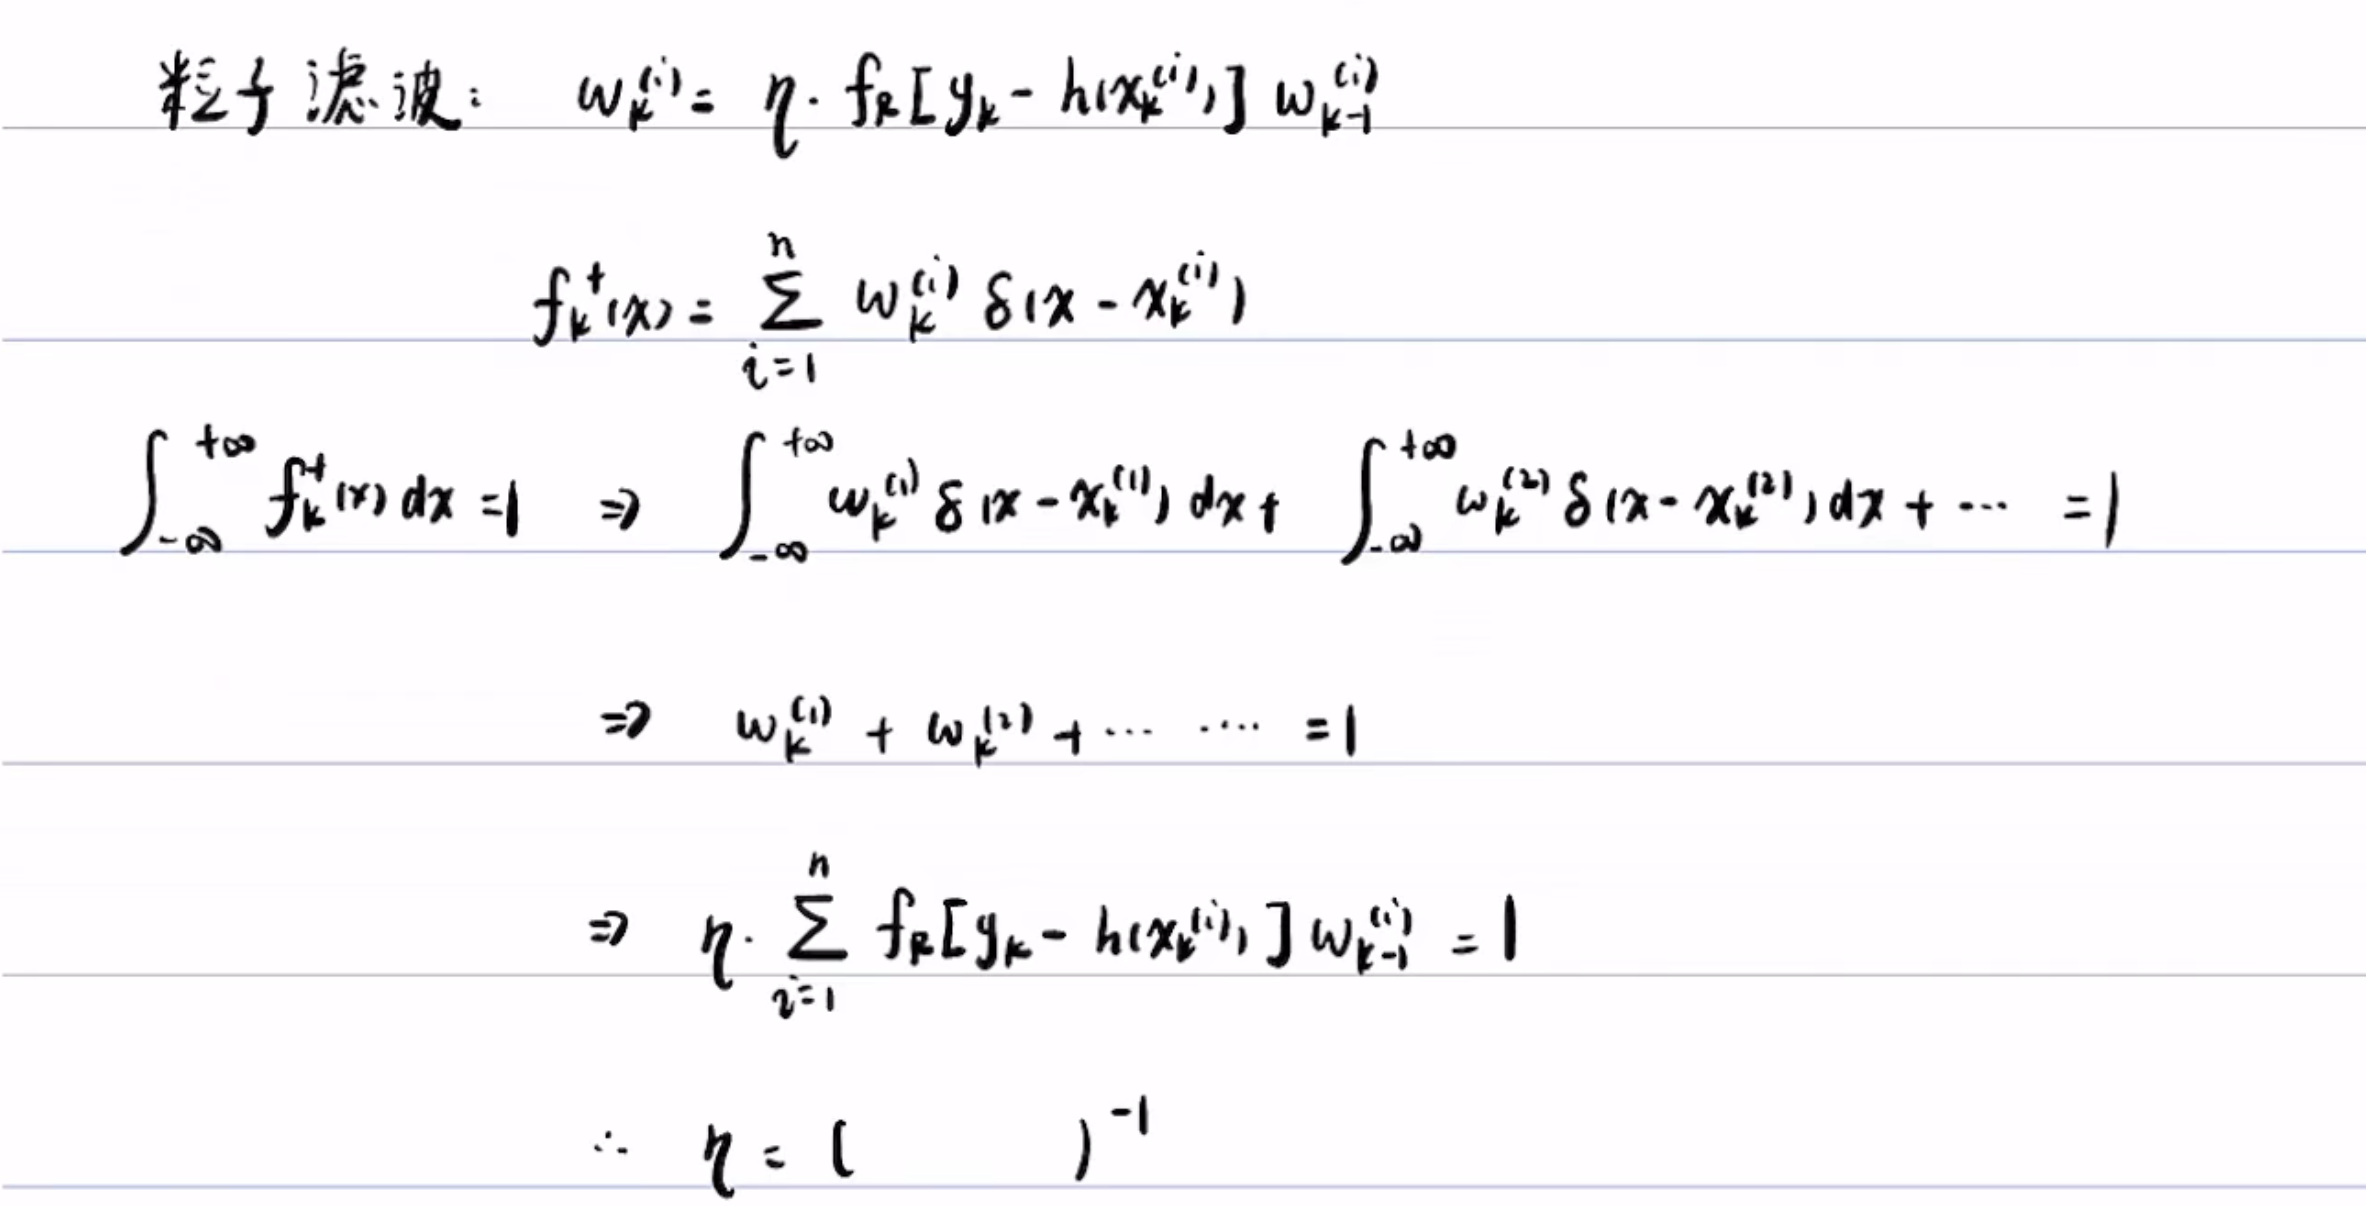 粒子滤波： w_k^{(i)} = η · f_R[y_k - h(x_k^{(i)})] w_{k-1}^{(i)}
f_k^+(x) = \sum_{i=1}^{n} w_k^{(i)} δ(x - x_k^{(i)})
\int_{-∞}^{+∞} f_k^+(x) dx = 1 ⇒ \int_{-∞}^{+∞} w_k^{(1)} δ(x - x_k^{(1)}) dx + \int_{-∞}^{+∞} w_k^{(2)} δ(x - x_k^{(2)}) dx + ⋯ = 1
⇒ w_k^{(1)} + w_k^{(2)} + ⋯ ⋯ = 1
⇒ η · \sum_{i=1}^{n} f_R[y_k - h(x_k^{(i)})] w_{k-1}^{(i)} = 1
∴ η = ( )^{-1}